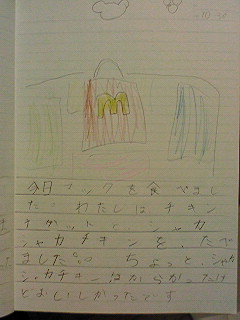 m
今日マックを食べまし
た。わたしは、チキン
ナゲットと、シャカ
シャカチキンを、たべ
ました。ちょっと、シャカ
シャカチキンはからかったけ
どおいしかったです